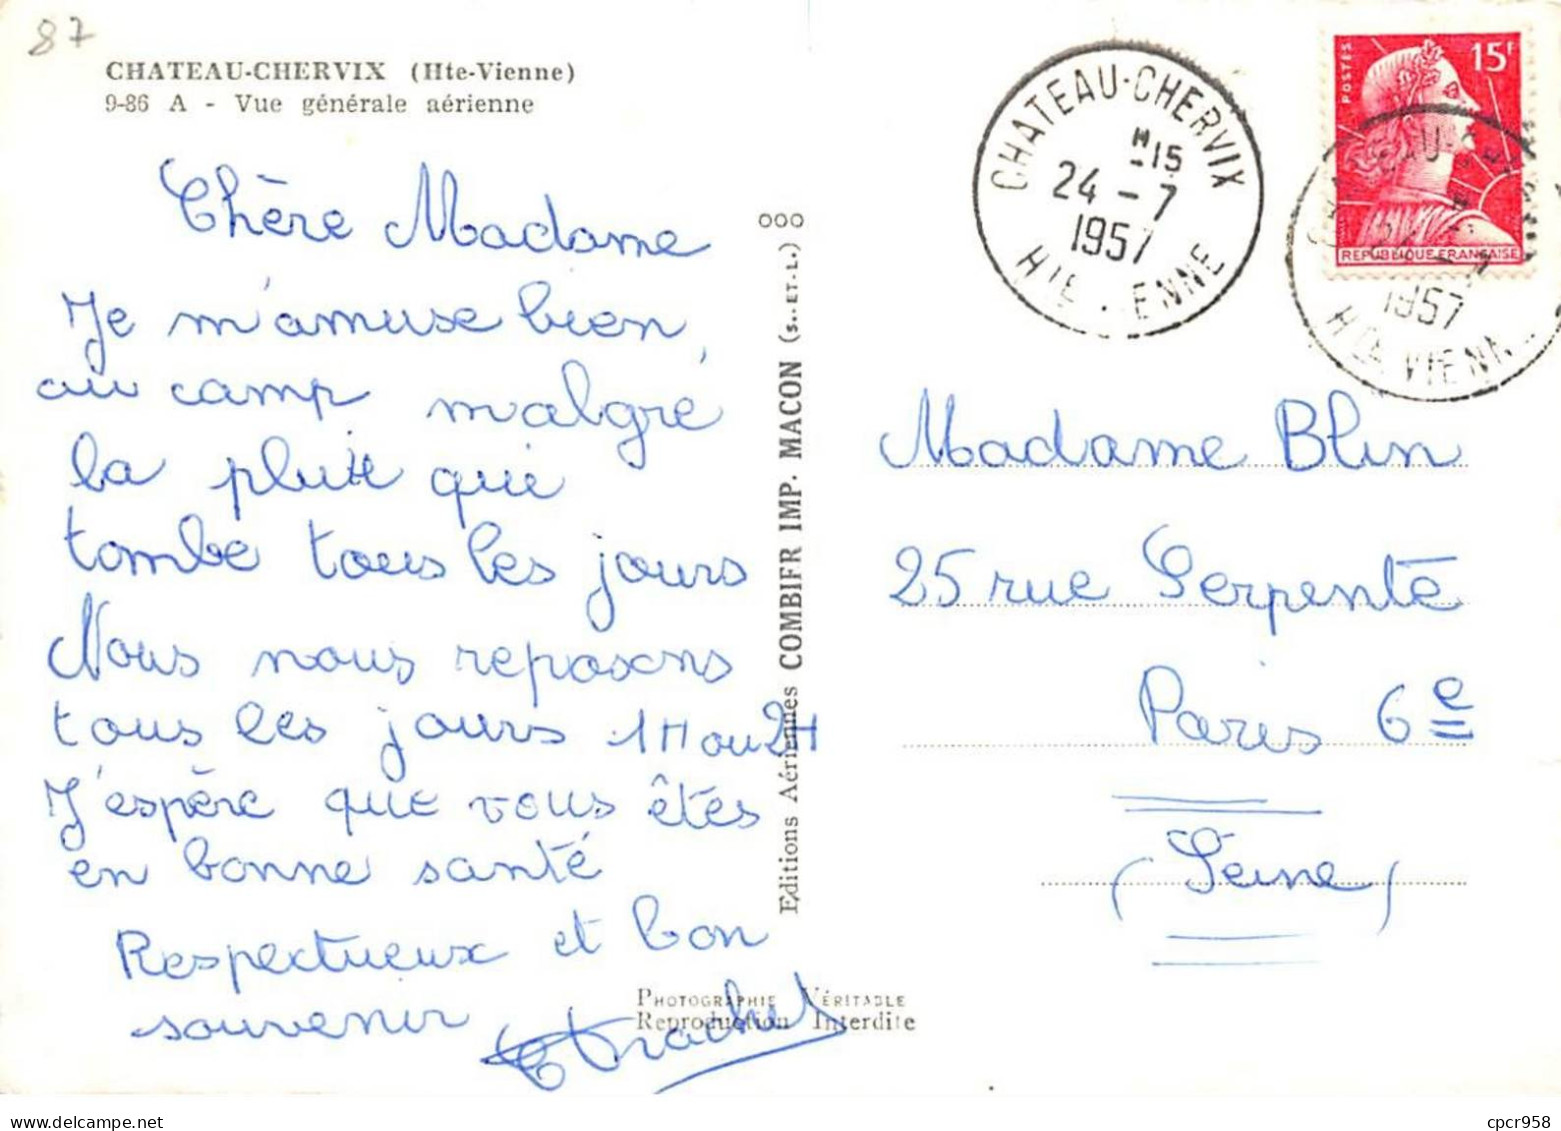 87
CHATEAU-CHERVIX (Hte-Vienne)
9-86 A - Vue générale aérienne
Chère Madame
Je m'amuse bien
au camp malgré
la pluie que
tombe tous les jours
Nous nous reposons
tous les jours 1H ou 2H
J'espère que vous êtes
en bonne santé
Respectueux et bon
souvenir
OOO
Editions Aériennes COMBIER IMP. MACON (S.-ET-L.)
PHOTOGRAPHIE VÉRITABLE
Reproduction Interdite
CHATEAU-CHERVIX
H15
24-7
1957
HTE VIENNE
POSTES
15F
REPUBLIQUE FRANÇAISE
1957
HTE VIENNE
Madame Blin
25 rue Serpente
Paris 6e
(Seine)
cpcr958